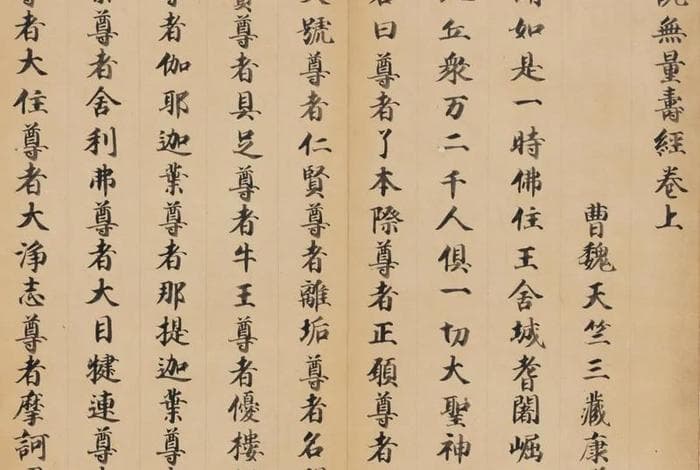 無量壽經卷上
曹魏天竺三藏康
聞如是一時佛住王舍城耆闍崛
丘衆万二千人俱一切大聖神
名曰尊者了本際尊者正願尊者
號尊者仁賢尊者離垢尊者名
尊者具足尊者牛王尊者優樓
者伽耶迦葉尊者那提迦葉尊
尊者舍利弗尊者大目犍連尊
者大住尊者大浄志尊者摩訶